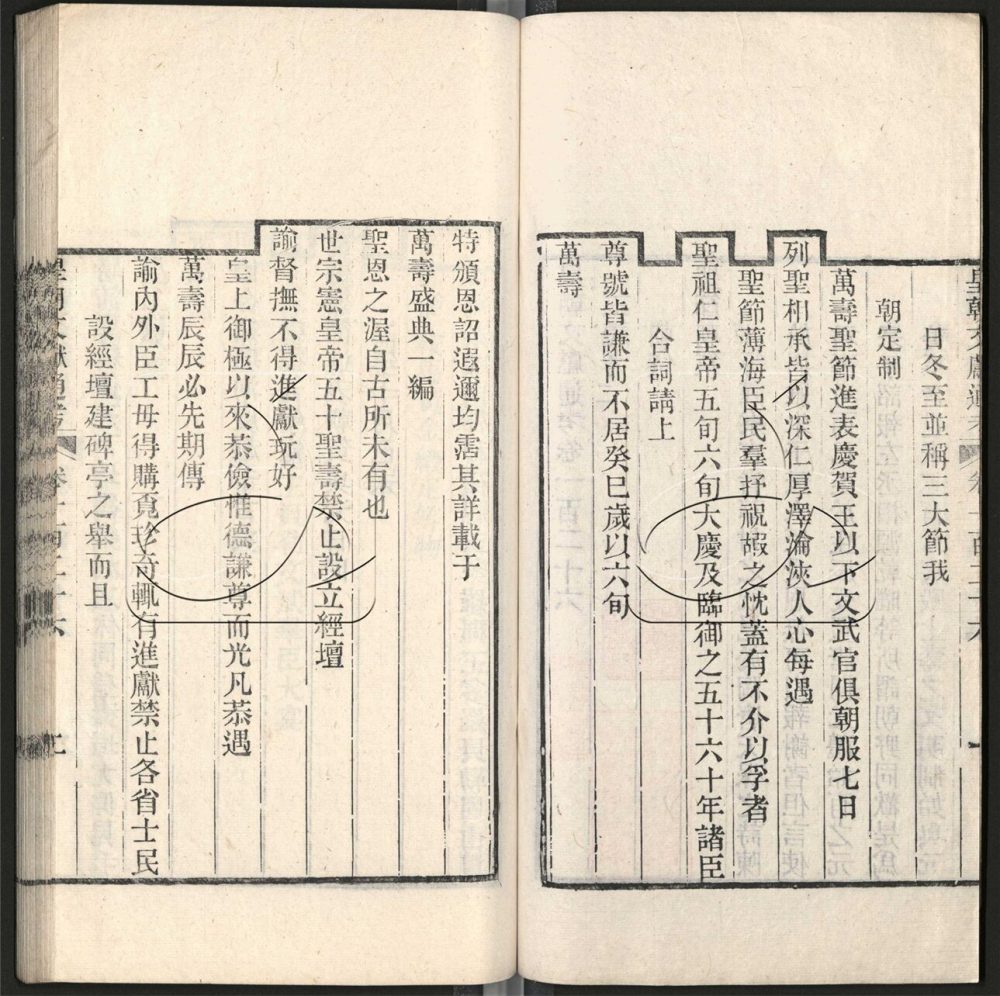 日冬至並稱三大節我
朝定制
萬壽聖節進表慶賀王以下文武官俱朝服七日
列聖相承皆以深仁厚澤淪浹人心每遇
聖節薄海臣民羣抒祝嘏之忱蓋有不介以孚者
聖祖仁皇帝五旬六旬大慶及臨御之五十六十年諸臣
合詞請上
尊號皆謙而不居癸巳歲以六旬
萬壽
特頒恩詔遐邇均霑其詳載于
萬壽盛典一編
聖恩之渥自古所未有也
世宗憲皇帝五十聖壽禁止設立經壇
諭督撫不得進獻玩好
皇上御極以來恭儉惟德謙尊而光凡恭遇
萬壽辰辰必先期傳
諭內外臣工毋得購覓珍奇輒有進獻禁止各省士民
設經壇建碑亭之舉而且
皇朝文獻通考